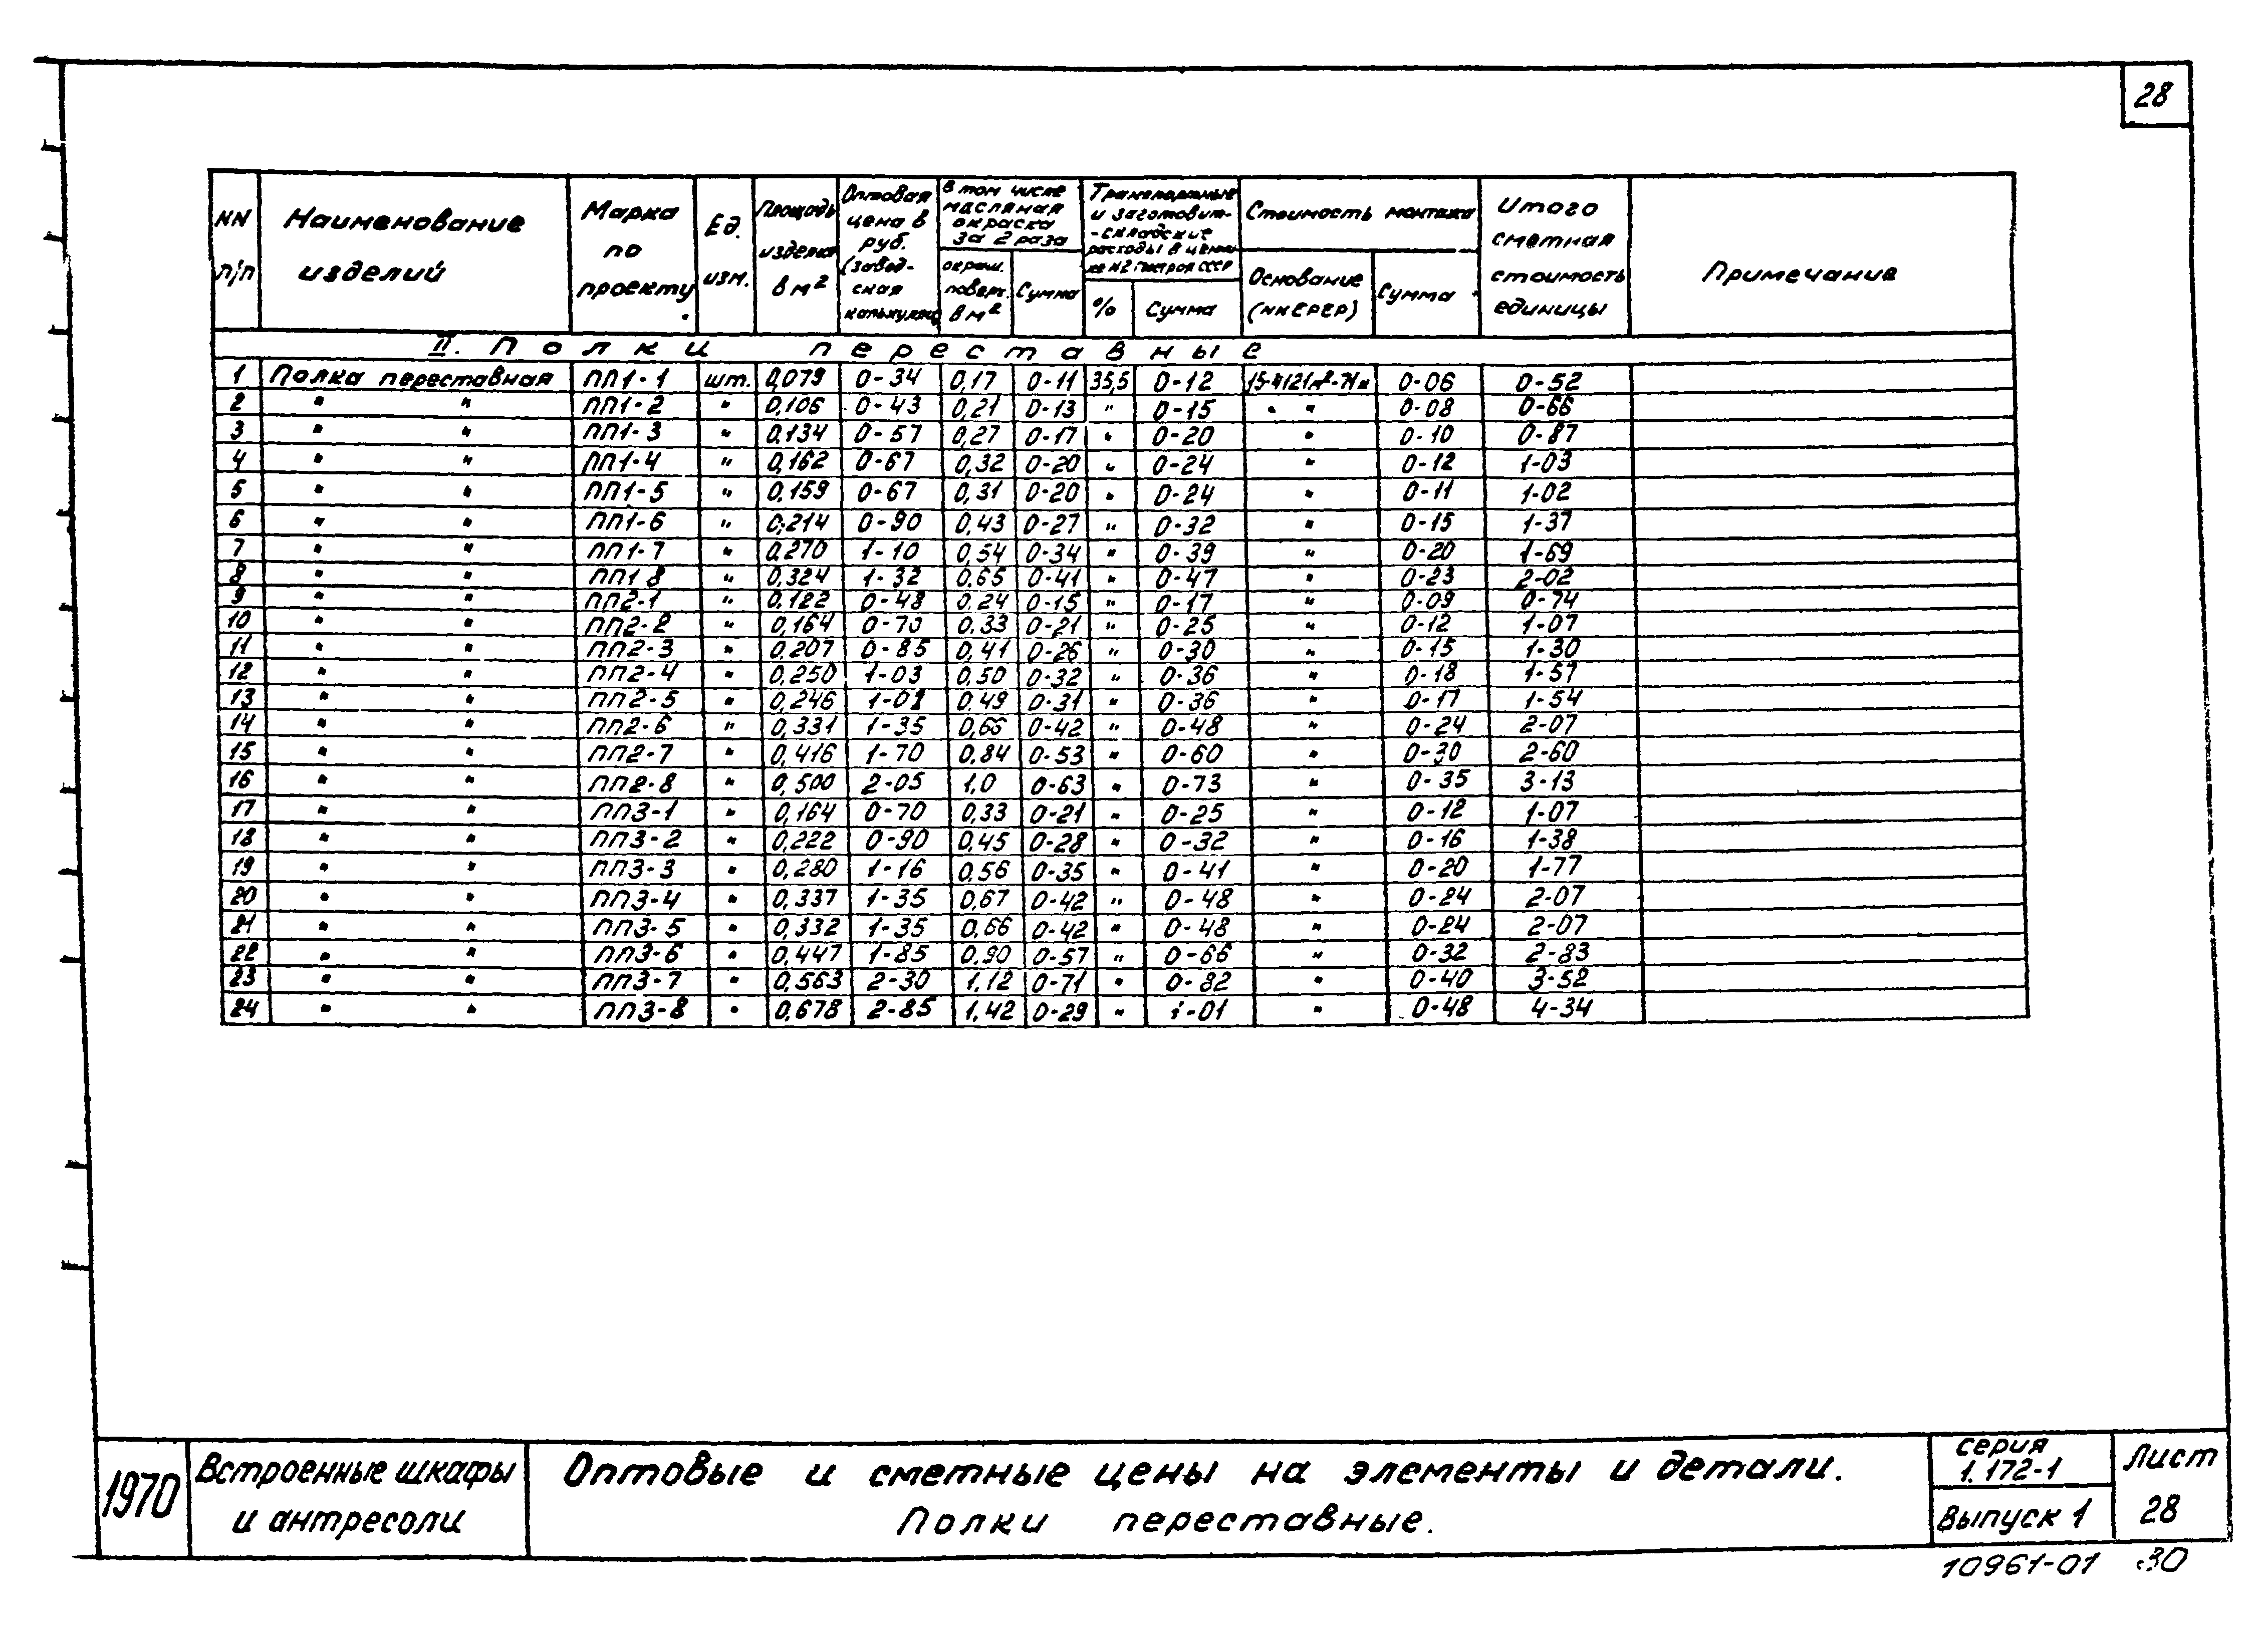 28
NN п/п | Наименование изделий | Марка по проекту | Ед. изм. | Площадь изделия в м² | Оптовая цена в руб. (завод-ская калькуляц | В том числе масляная окраска за 2 раза | Транспортные и заготовит-складские расходы в ценни-ке №2 Госстроя СССР | Стоимость монтажа | Итого сметная стоимость единицы | Примечание
окраш. поверх. в м² | Сумма | % | Сумма | Основание (NN ЕРЕР) | Сумма
II. Полки переставные
1 | Полка переставная | ПП1-1 | шт. | 0,079 | 0-34 | 0,17 | 0-11 | 35,5 | 0-12 | 0-06 | 0-52
2 | " " | ПП1-2 | " | 0,106 | 0-43 | 0,21 | 0-13 | " | 0-15 | " " | 0-08 | 0-66
3 | " " | ПП1-3 | " | 0.134 | 0-57 | 0,27 | 0-17 | " | 0-20 | " | 0-10 | 0-87
4 | " " | ПП1-4 | " | 0,162 | 0-67 | 0,32 | 0-20 | " | 0-24 | " | 0-12 | 1-03
5 | " " | ПП1-5 | " | 0,159 | 0-67 | 0,31 | 0-20 | " | 0-24 | " | 0-11 | 1-02
6 | " " | ПП1-6 | " | 0,214 | 0-90 | 0,43 | 0-27 | " | 0-32 | " | 0-15 | 1-37
7 | " " | ПП1-7 | " | 0,270 | 1-10 | 0,54 | 0-34 | " | 0-39 | " | 0-20 | 1-69
8 | " " | ПП1 8 | " | 0,324 | 1-32 | 0.65 | 0-41 | " | 0-47 | " | 0-23 | 2-02
9 | " " | ПП2-1 | " | 0.122 | 0-48 | 0.24 | 0-15 | " | 0-17 | " | 0-09 | 0-74
10 | " " | ПП2-2 | " | 0,164 | 0-70 | 0.33 | 0-21 | " | 0-25 | " | 0-12 | 1-07
11 | " " | ПП2-3 | " | 0,207 | 0-85 | 0,41 | 0-26 | " | 0-30 | " | 0-15 | 1-30
12 | " " | ПП2-4 | " | 0,250 | 1-03 | 0,50 | 0-32 | " | 0-36 | " | 0-18 | 1-57
13 | " " | ПП2-5 | " | 0,246 | 1-01 | 0.49 | 0-31 | " | 0-36 | " | 0-17 | 1-54
14 | " " | ПП2-6 | " | 0,331 | 1-35 | 0,66 | 0-42 | " | 0-48 | " | 0-24 | 2-07
15 | " " | ПП2-7 | " | 0,416 | 1-70 | 0.84 | 0-53 | " | 0-60 | " | 0-30 | 2-60
16 | " " | ПП2-8 | " | 0,500 | 2-05 | 1,0 | 0-63 | " | 0-73 | " | 0-35 | 3-13
17 | " " | ПП3-1 | " | 0,164 | 0-70 | 0,33 | 0-21 | " | 0-25 | " | 0-12 | 1-07
18 | " " | ПП3-2 | " | 0,222 | 0-90 | 0,45 | 0-28 | " | 0-32 | " | 0-16 | 1-38
19 | " " | ПП3-3 | " | 0,280 | 1-16 | 0,56 | 0-35 | " | 0-41 | " | 0-20 | 1-77
20 | " " | ПП3-4 | " | 0,337 | 1-35 | 0,67 | 0-42 | " | 0-48 | " | 0-24 | 2-07
21 | " " | ПП3-5 | " | 0,332 | 1-35 | 0,66 | 0-42 | " | 0-48 | " | 0-24 | 2-07
22 | " " | ПП3-6 | " | 0,447 | 1-85 | 0,90 | 0-57 | " | 0-66 | " | 0-32 | 2-83
23 | " " | ПП3-7 | " | 0,563 | 2-30 | 1,12 | 0-71 | " | 0-82 | " | 0-40 | 3-52
24 | " " | ПП3-8 | " | 0,678 | 2-85 | 1,42 | 0-29 | " | 1-01 | " | 0-48 | 4-34
1970
Встроенные шкафы
и антресоли
Оптовые и сметные цены на элементы и детали.
Полки переставные.
серия
1.172-1
Выпуск 1
Лист
28
10961-01 30